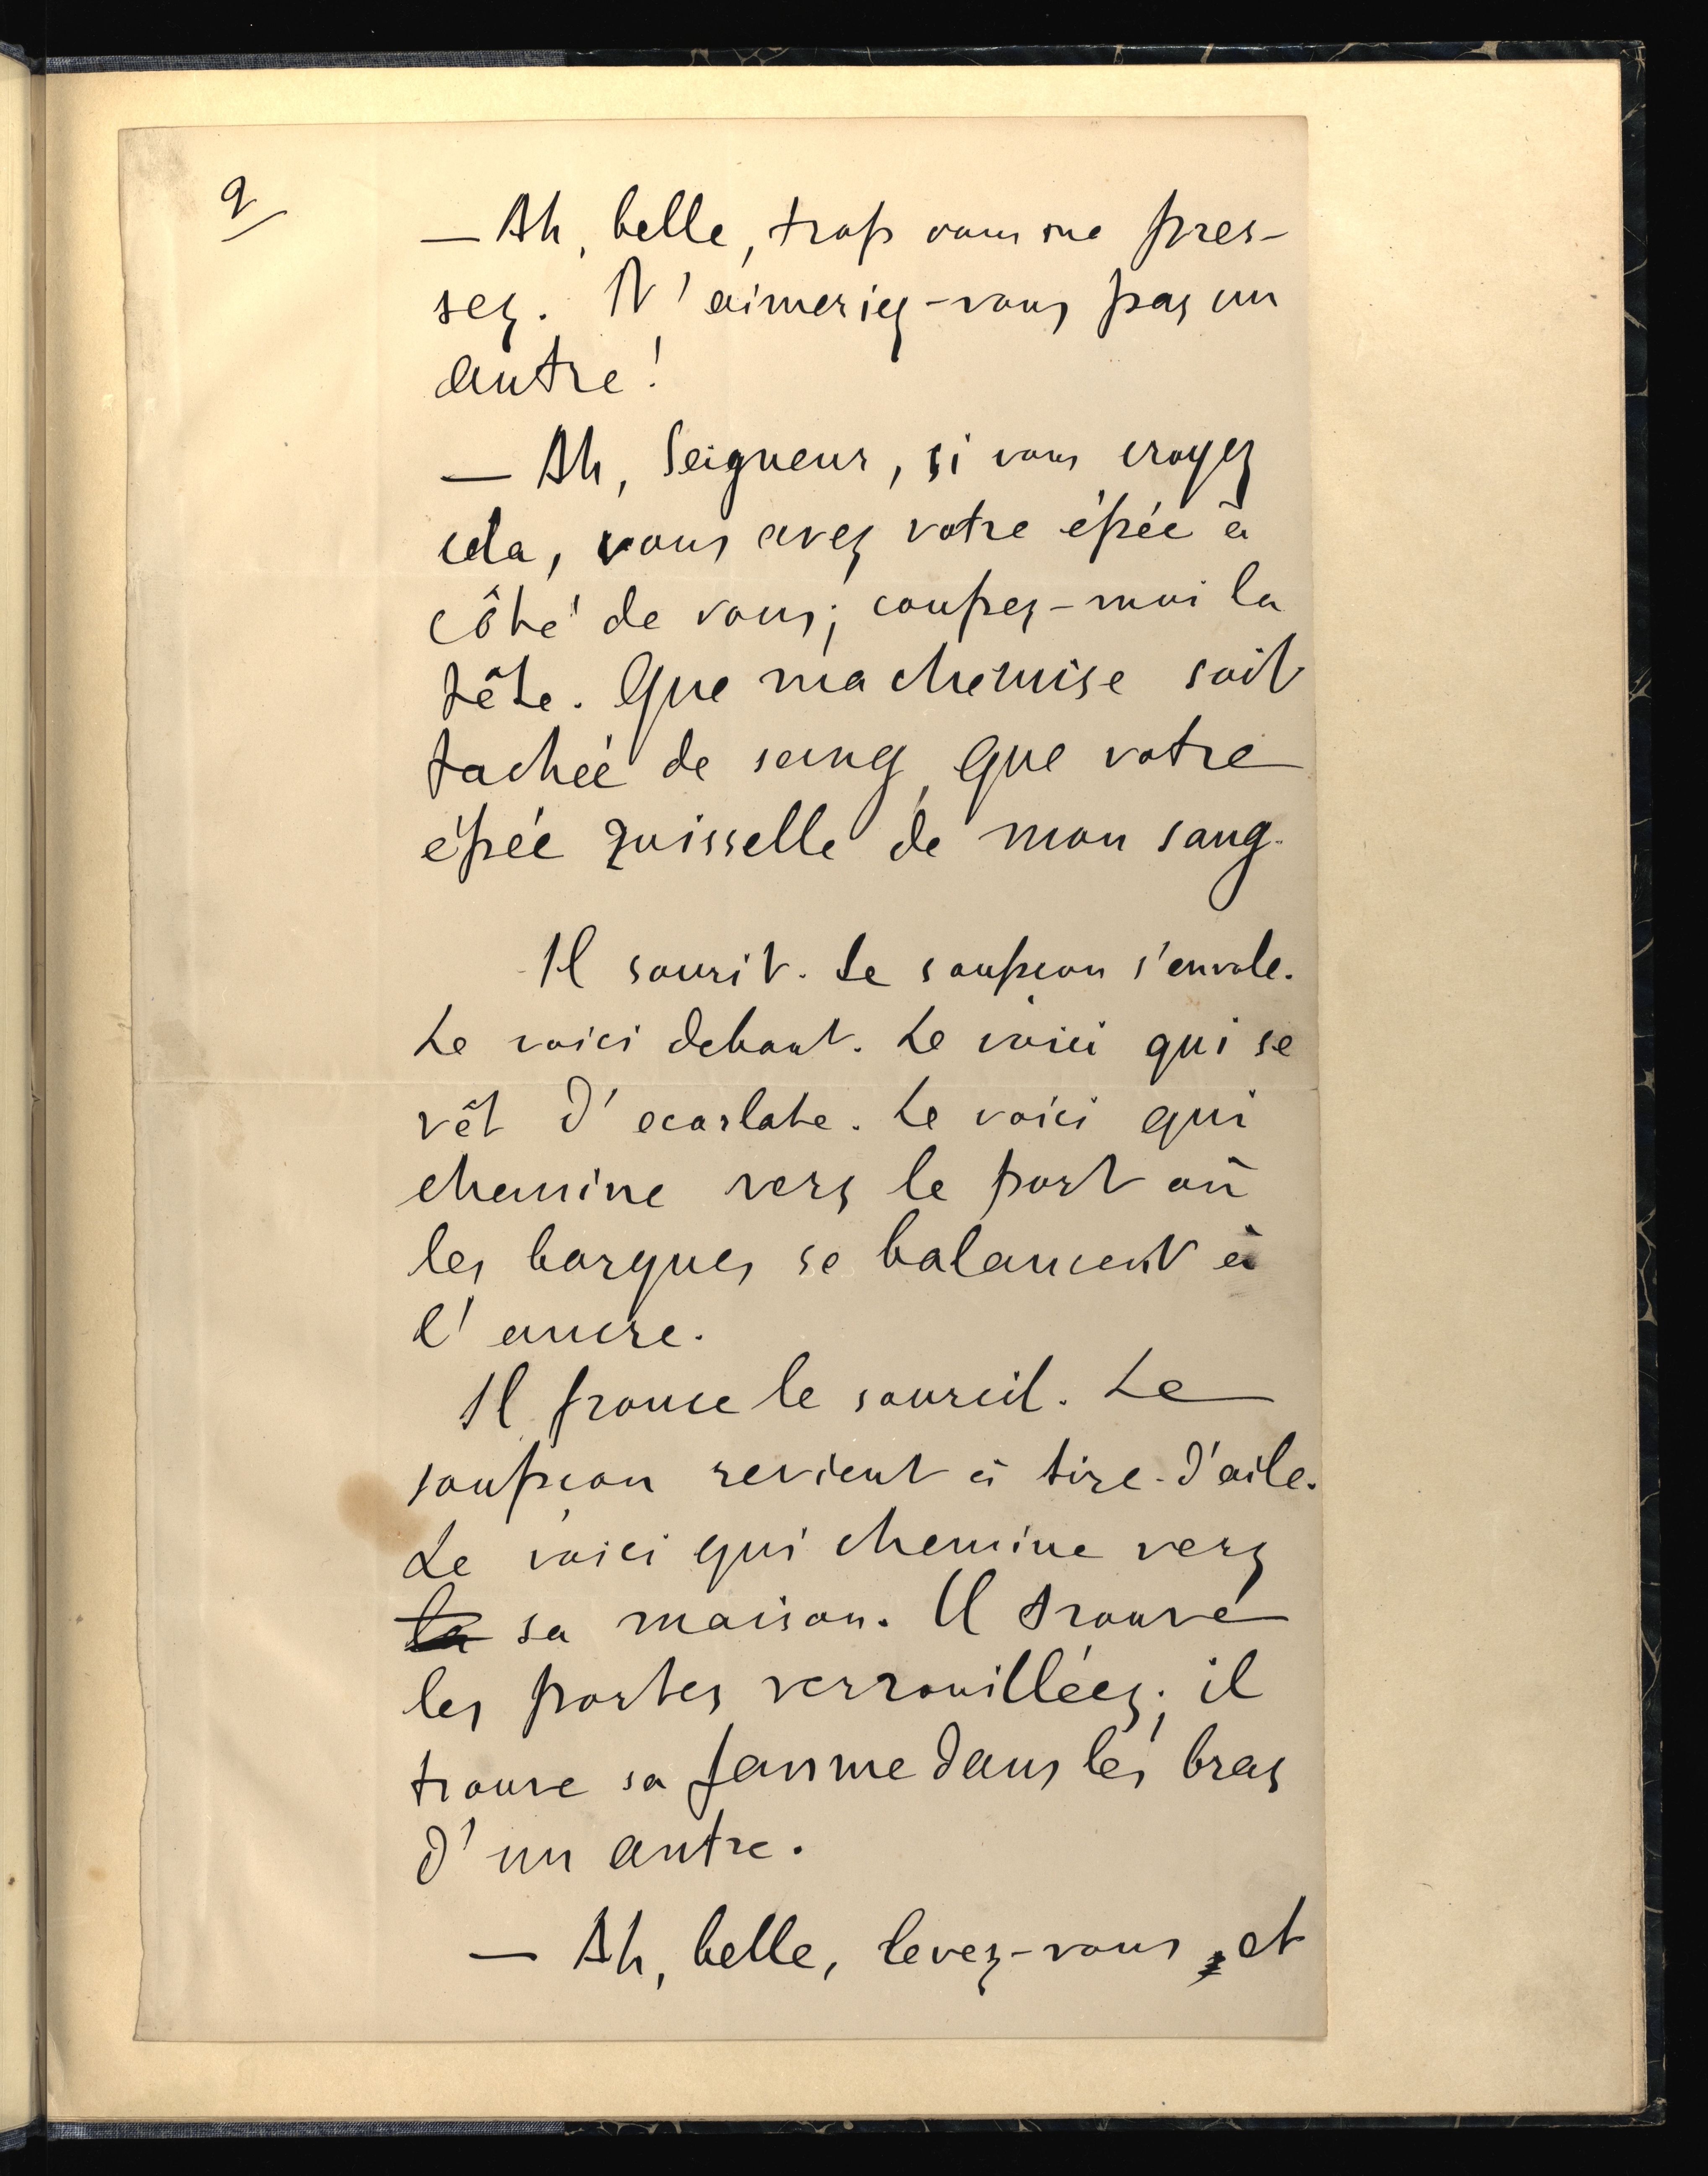 9
— Ah, belle, trop vous me pres-
sez. N'aimeriez-vous pas un
autre!
— Ah, Seigneur, si vous croyez
cela, vous avez votre épée à
côté de vous; coupez-moi la
tête. Que ma chemise soit
tachée de sang, que votre
épée ruisselle de mon sang.
Il sourit. Le soupçon s'envole.
Le voici debout. Le voici qui se
vêt d'ecarlate. Le voici qui
chemine vers le port où
les barques se balancent à
l'ancre.
Il fronce le sourcil. Le
soupçon revient à tire-d'aile.
Le voici qui chemine vers
la sa maison. Il trouve
les portes verrouillées; il
trouve sa femme dans les bras
d'un autre.
— Ah, belle, levez-vous, et